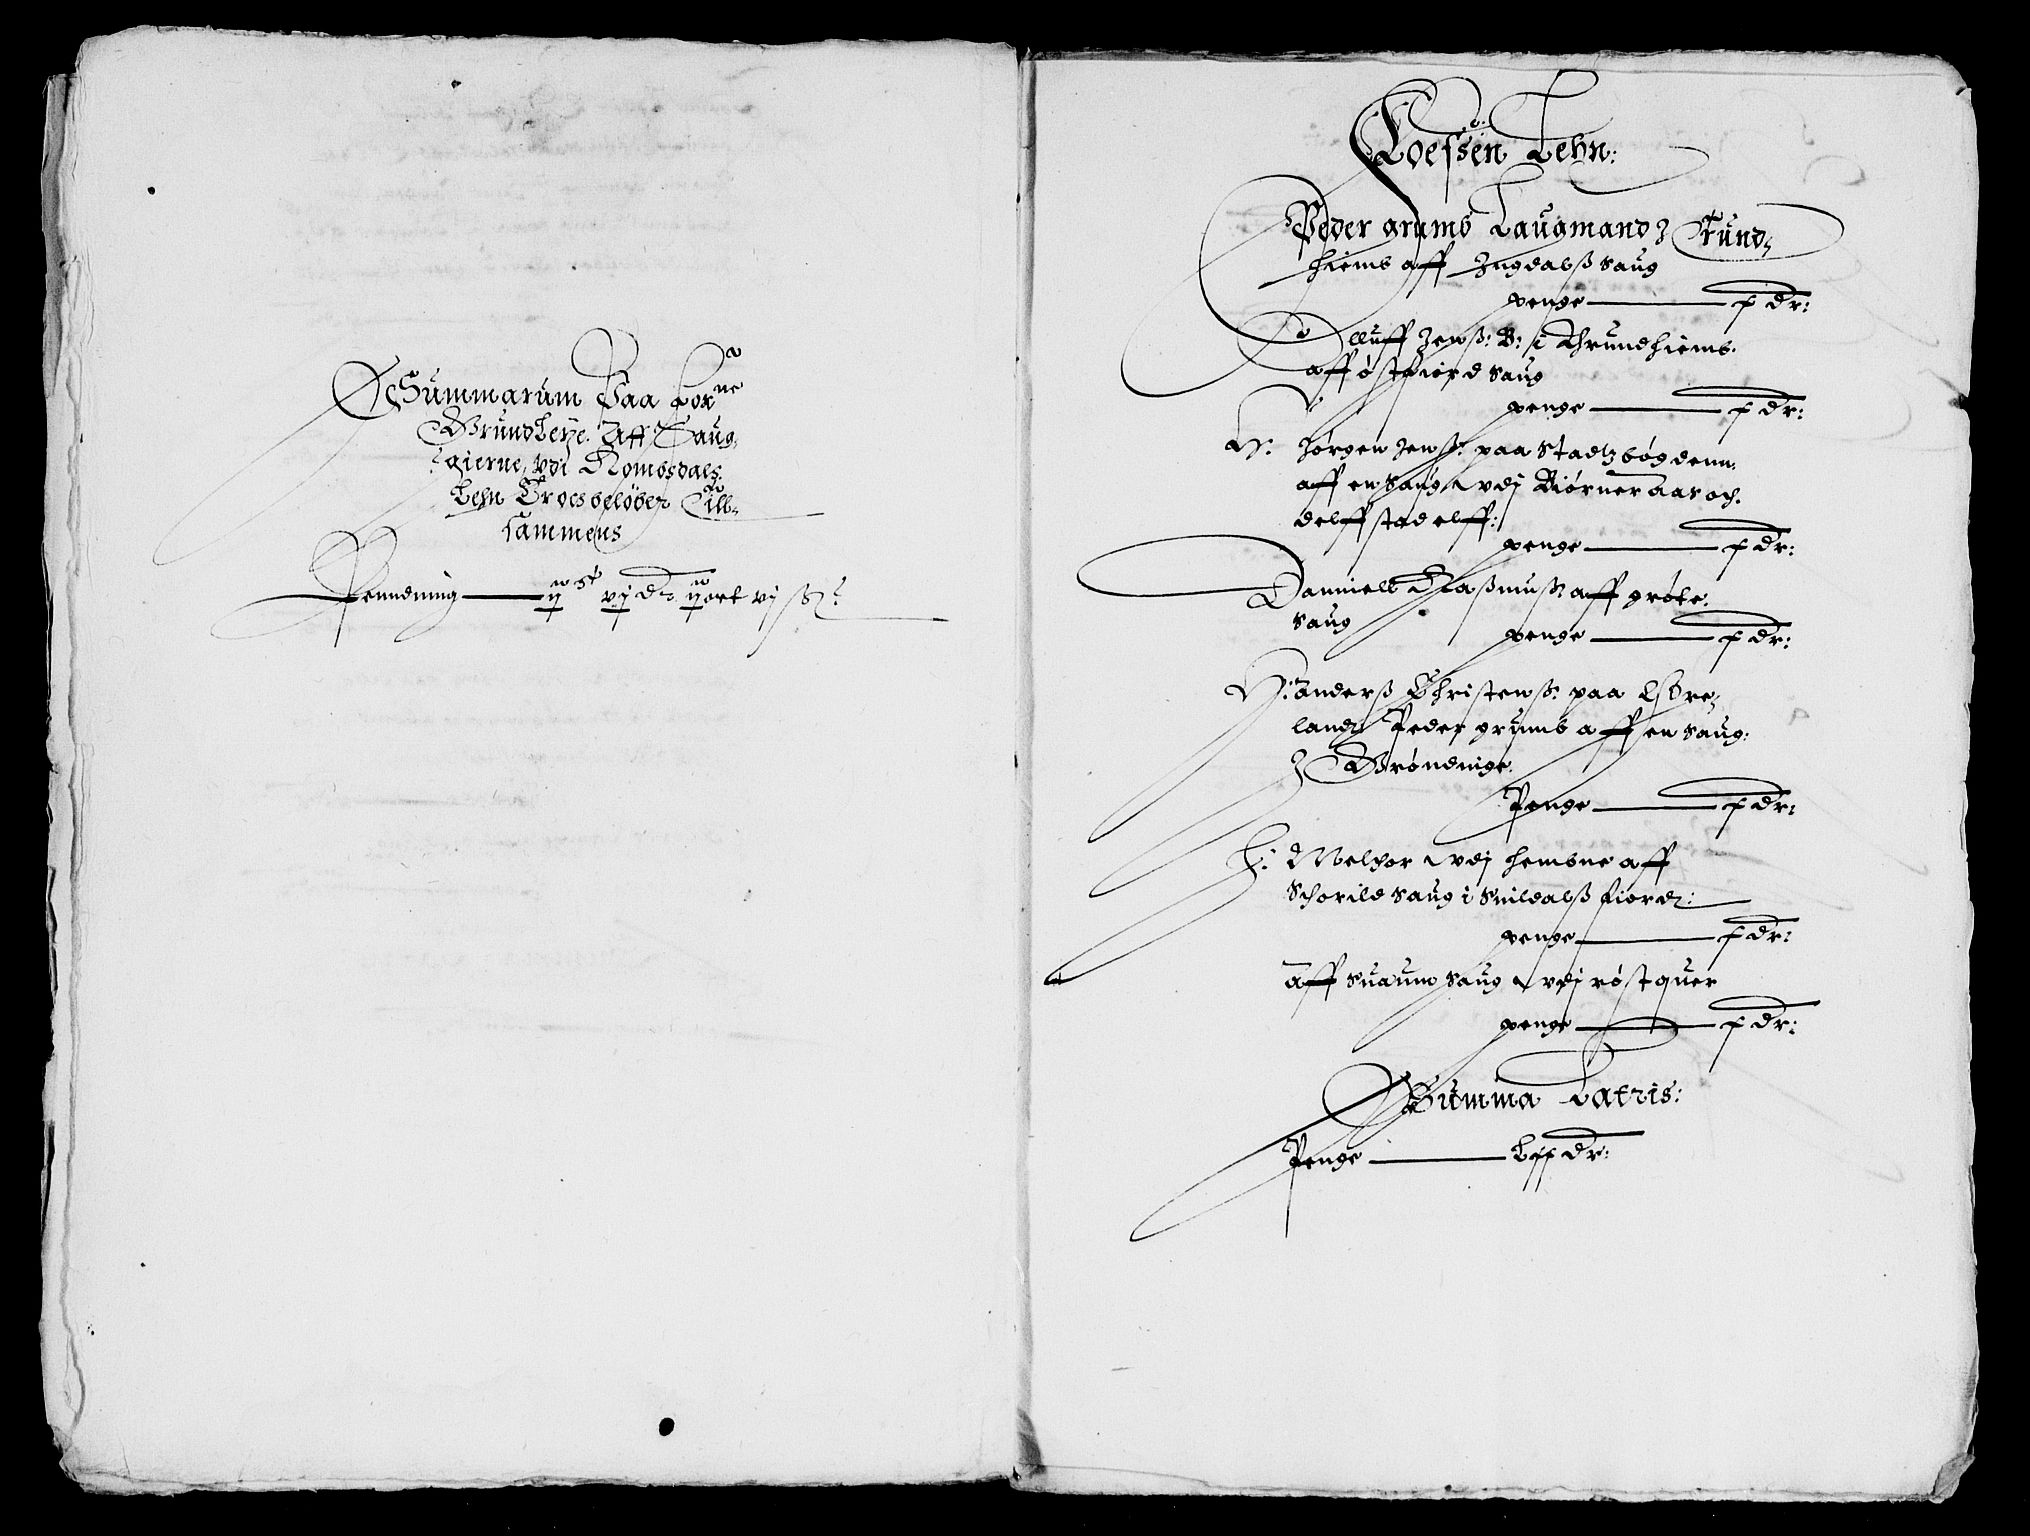 Summarum Paa for:ne
Grundleye Aff Saug,
gierne, vdi Romsdals
Lehn Er oes beløber Till,
sammens
Penndinng — ij st vj dr ij ort vj ss
Foessen Lehn:
Peder grums Laugmand i Trund,
hiembs aff Ingdalss Saug
penge — j dr:
Olluff Jenss: B: i Thrundhiemb.
aff østfiord Saug
penge — j dr:
N: Jørgen Jenss: paa Stadtzbøgdenn
aff en Saug vdj Biørneraas och
penge — j dr:
Danniell Rassmuss: aff grøte
Saug
penge — j dr:
N: anderss Christenss: paa
landt Peder grumbs aff en Saug:
i Grønninge
Penge — j dr:
H: Melchor vdj hembne aff
Schorild Saug i Snildalss fiordt:
penge — j dr:
aff Suaum Saug vdj røstquer
penge — j dr:
Summa Latris:
Penge — dr: